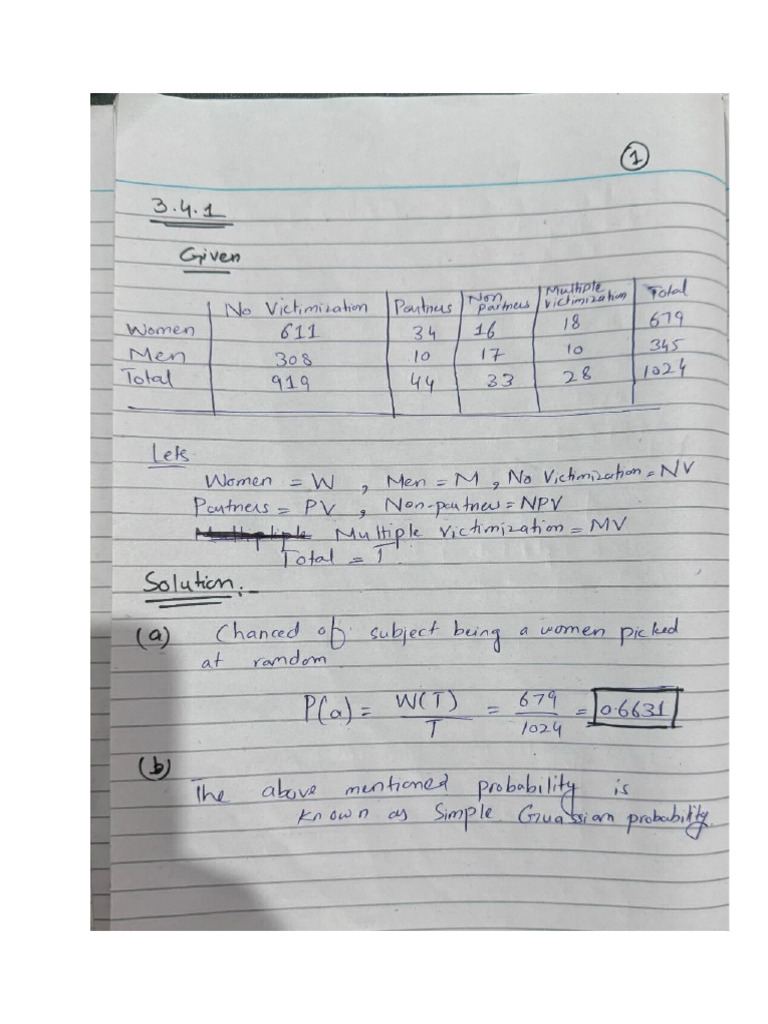 1
3.4.1
Given
No Victimization Partners Non partners Multiple victimization Total
Women 611 34 16 18 679
Men 308 10 17 10 345
Total 919 44 33 28 1024
Lets
Women = W , Men = M , No Victimization = NV
Partners = PV , Non-partners = NPV
Multiple Victimization = MV
Total = T
Solution:-
(a) Chanced of subject being a women picked
at random
P(a) = W(T)/T = 679/1024 = 0.6631
(b)
The above mentioned probability is
known as Simple Gruassian probability.